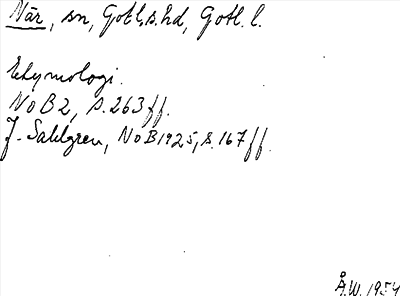 När, sn, Gotl. s. hd, Gotl. l.
Etymologi.
NoB 2, s. 263 ff.
J. Sahlgren, NoB 1925, s. 167 ff.
Å.W. 1954